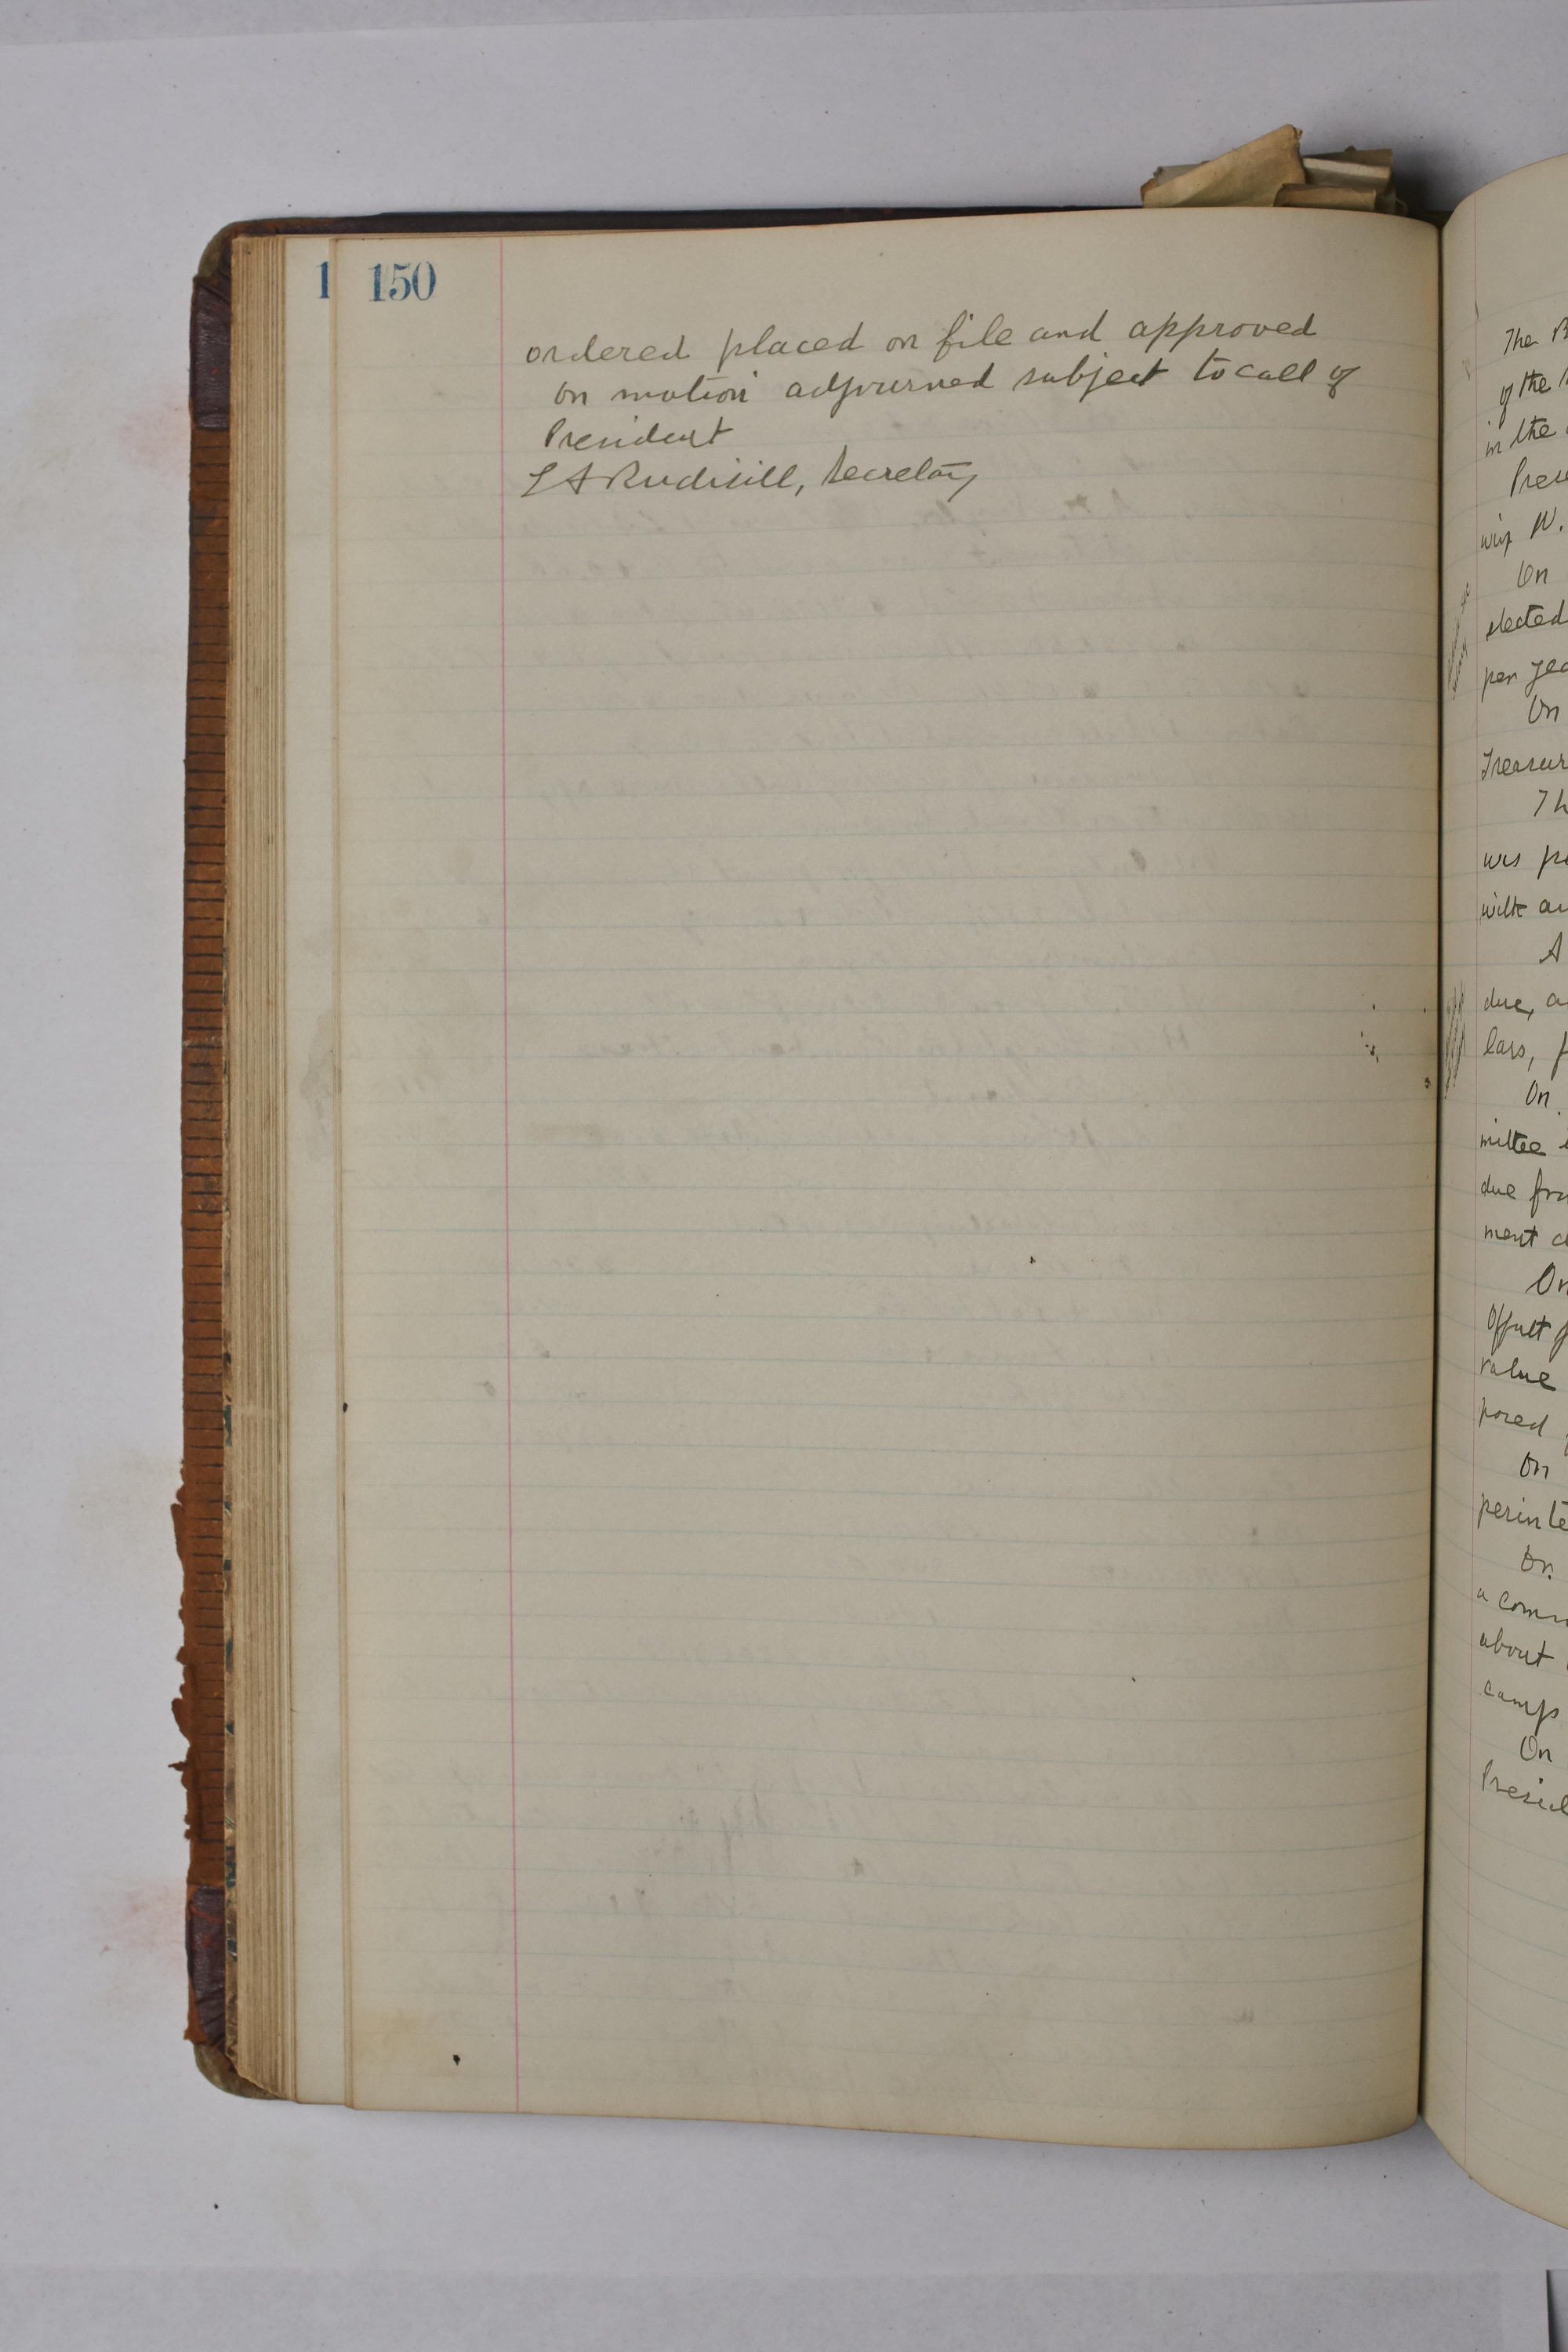 1 150
ordered placed on file and approved
on motion adjourned subject to call of
President
L A Rudisill, Secretary
The
of the
in the
Prese
W.
On
elected
per yea
On
Treasur
Th
was
with
A
due, a
lars,
On
mittee
due fro
ment
On
Offutt
value
posed
On
perinte
On
a comm
about
camps
On
Presid